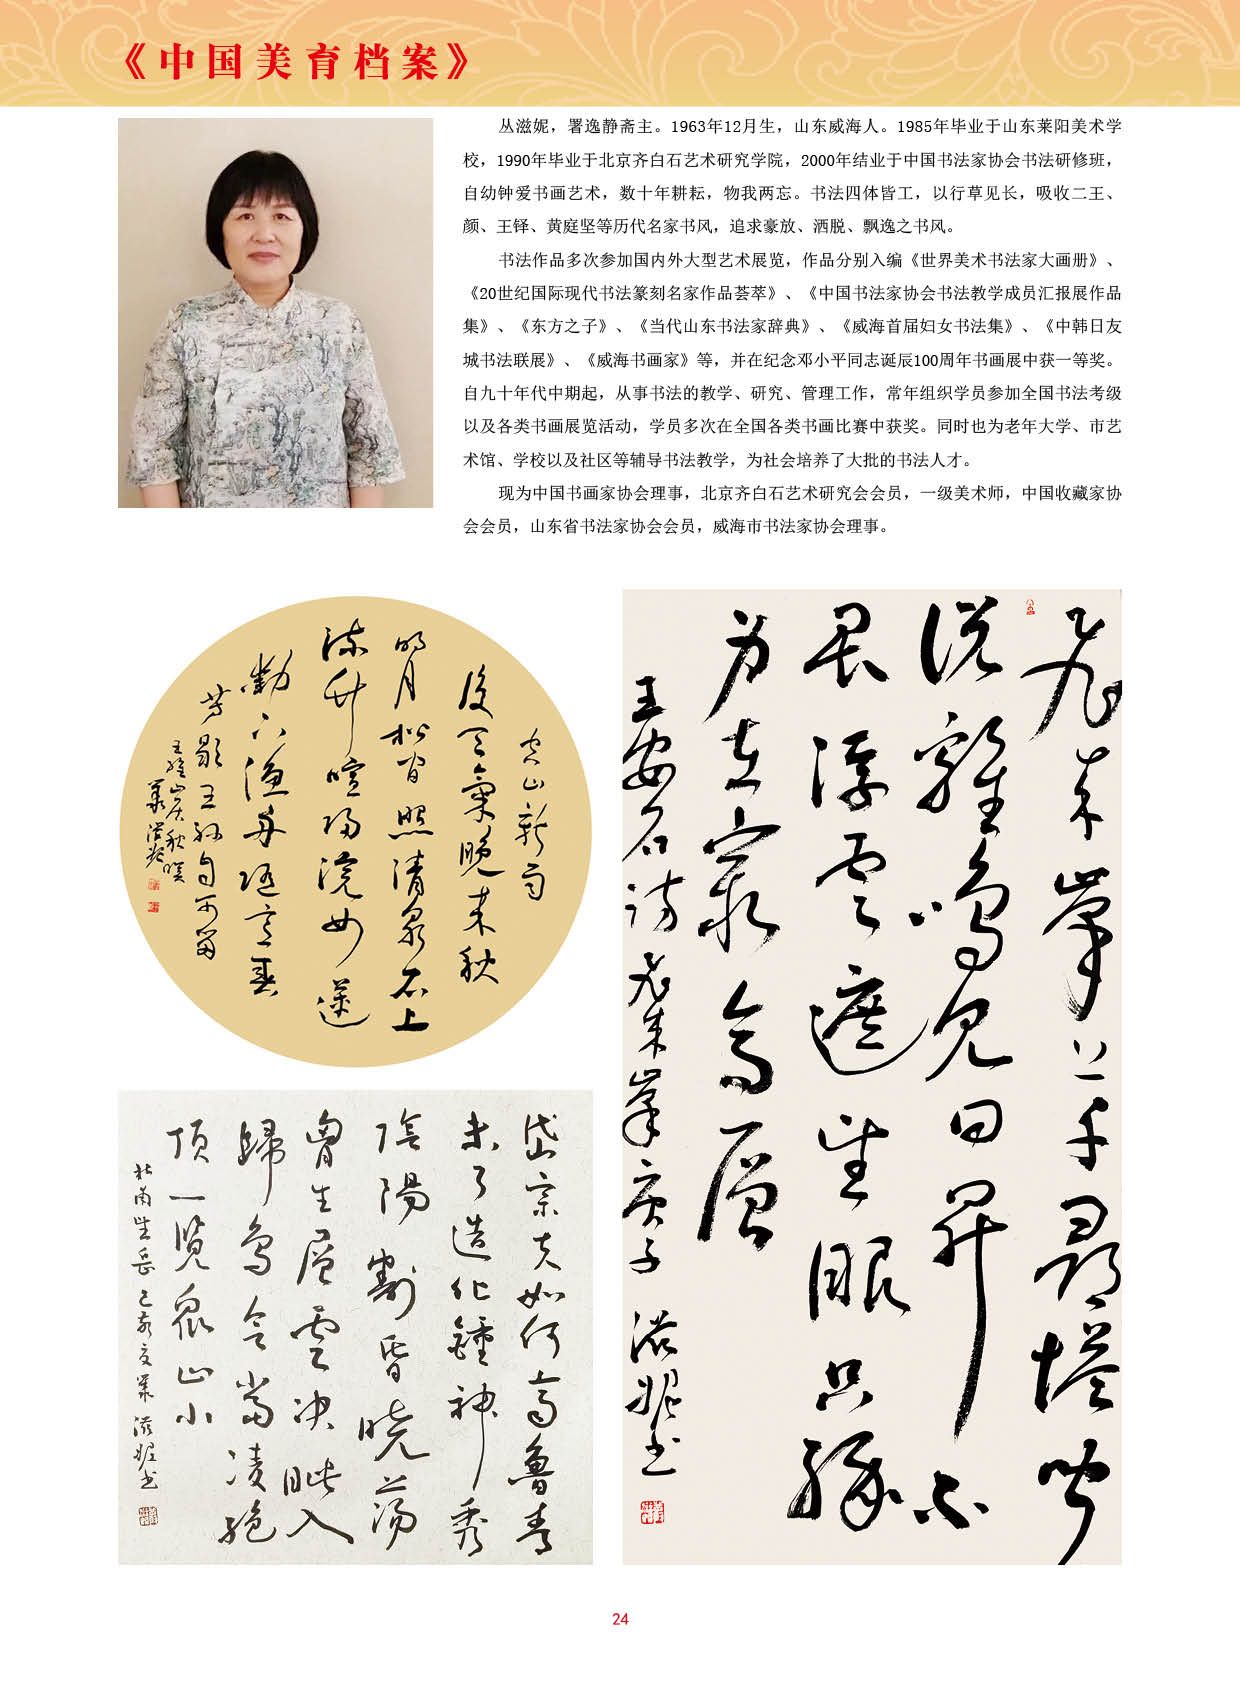 《中国美育档案》
丛滋妮，署逸静斋主。1963年12月生，山东威海人。1985年毕业于山东莱阳美术学
校，1990年毕业于北京齐白石艺术研究学院，2000年结业于中国书法家协会书法研修班，
自幼钟爱书画艺术，数十年耕耘，物我两忘。书法四体皆工，以行草见长，吸收二王、
颜、王铎、黄庭坚等历代名家书风，追求豪放、洒脱、飘逸之书风。
书法作品多次参加国内外大型艺术展览，作品分别入编《世界美术书法家大画册》、
《20世纪国际现代书法篆刻名家作品荟萃》、《中国书法家协会书法教学成员汇报展作品
集》、《东方之子》、《当代山东书法家辞典》、《威海首届妇女书法集》、《中韩日友
城书法联展》、《威海书画家》等，并在纪念邓小平同志诞辰100周年书画展中获一等奖。
自九十年代中期起，从事书法的教学、研究、管理工作，常年组织学员参加全国书法考级
以及各类书画展览活动，学员多次在全国各类书画比赛中获奖。同时也为老年大学、市艺
术馆、学校以及社区等辅导书法教学，为社会培养了大批的书法人才。
现为中国书画家协会理事，北京齐白石艺术研究会会员，一级美术师，中国收藏家协
会会员，山东省书法家协会会员，威海市书法家协会理事。
空山新雨
後天氣晚来秋
明月松间照清泉石上
流竹喧归浣女莲
動下渔舟随意春
芳歇王孙自可留
王維山居秋暝
叢滋妮
飛来峯上千尋塔聞
说雞鸣见日昇不
畏浮雲遮望眼只缘
身在最高層
王安石诗飛来峯庚子滋妮书
岱宗夫如何齊魯青
未了造化鍾神秀
陰陽割昏曉荡
胷生層雲决眦入
歸鸟會當凌绝
顶一覧衆山小
杜甫望岳己亥夏叢滋妮书
24